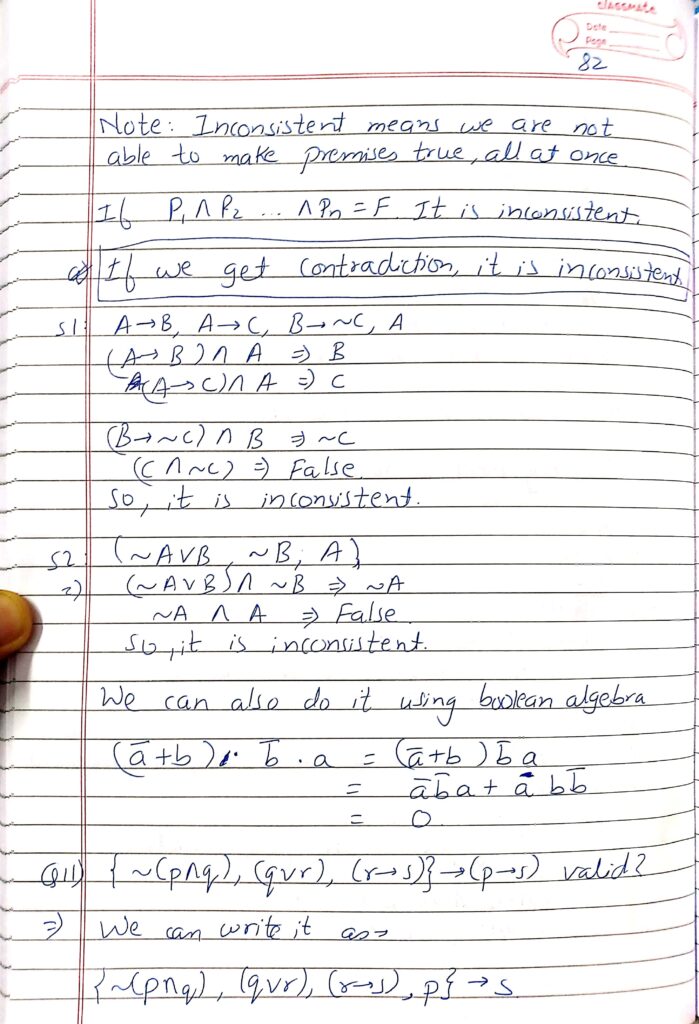 classmate
Date
Page
82
Note: Inconsistent means we are not
able to make premises true, all at once
If P₁ ∧ P₂ ... ∧ Pn = F. It is inconsistent.
If we get contradiction, it is inconsistent
S1: A→B, A→C, B→~C, A
(A→B) ∧ A ⇒ B
(A→C) ∧ A ⇒ C
(B→~C) ∧ B ⇒ ~C
(C ∧ ~C) ⇒ False.
So, it is inconsistent.
S2 (~A∨B, ~B, A}
2) (~A∨B) ∧ ~B ⇒ ~A
~A ∧ A ⇒ False
So, it is inconsistent.
We can also do it using boolean algebra
(a̅+b) · b̅ . a = (a̅+b) b̅ a
= a̅ b̅ a + a b b̅
= 0.
Q11) { ~(p∧q), (q∨r), (r→s)} → (p→s) valid?
⇒ We can write it as→
{~(p∧q), (q∨r), (r→s), p} → s